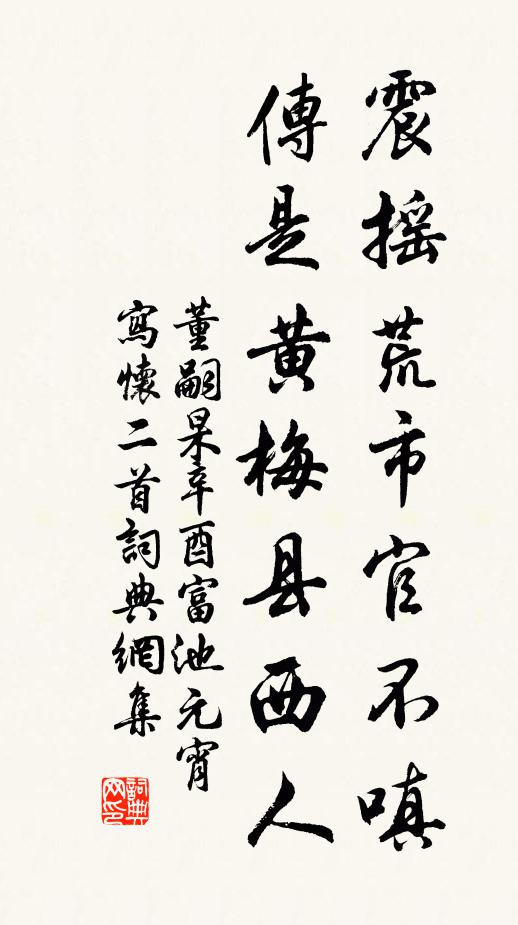 震摇荒市官不嗔
傳是黄梅县西人
董嗣杲辛酉富池元宵
寫懷二首詞典網集
詞典网印